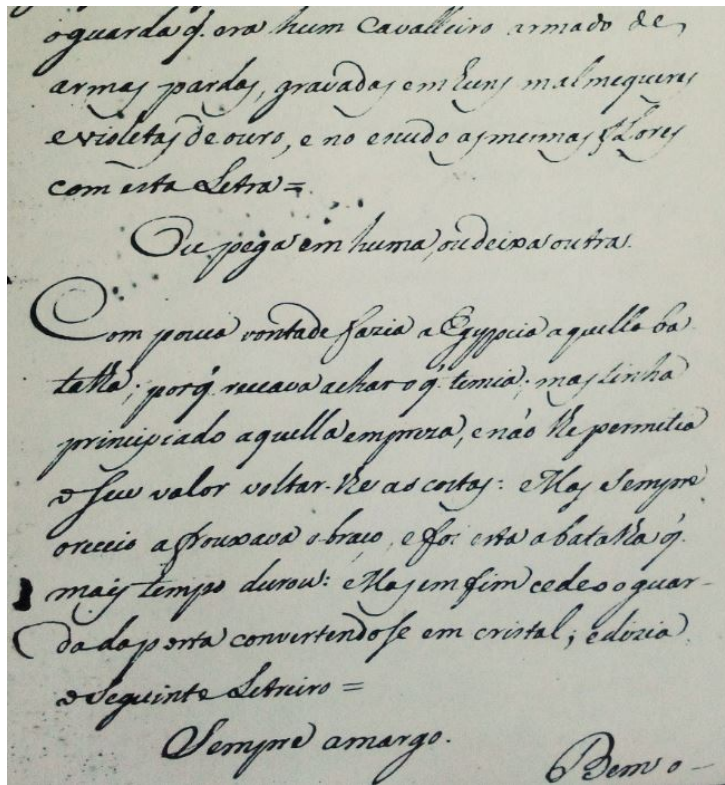 o guarda q. era hum Cavalleiro armado de
armas pardas, gravadas em huns malmequeres
e violetas de ouro, e no escudo as mesmas flores
com esta Letra =
Ou pega em huma, ou deixa outra.
Com pouca vontade fazia a Egypcia aquella ba
talha; porq. receava achar o q. temia; mas tinha
principiado aquella empreza, e não lhe permitia
o seu valor voltar-lhe as costas: Mas sempre
o receio afrouxava o braço, e foi esta a batalha q.
mais tempo durou: Mas em fim cedeo o guar-
da da porta convertendose em cristal; e dizia
o seguinte Letreiro =
Sempre amargo.
Bem o -